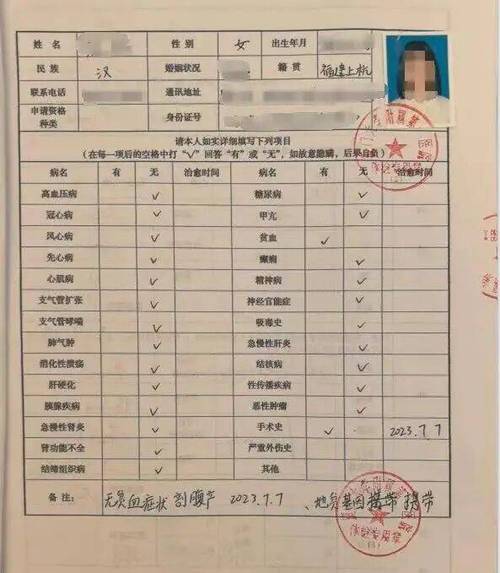 姓名 性别 女 出生年月
民族 汉 婚姻状况 籍贯 福建上杭
联系电话 通讯地址
申请资格种类 身份证号
请本人如实详细填写下列项目
(在每一项后的空格中打“√”回答“有”或“无”，如故意隐瞒，后果自负)
病名 有 无 治愈时间 病名 有 无 治愈时间
高血压病 √ 糖尿病 √
冠心病 √ 甲亢 √
风心病 √ 贫血 √
先心病 √ 癫痫 √
心肌病 √ 精神病 √
支气管扩张 √ 神经官能症 √
支气管哮喘 √ 吸毒史 √
肺气肿 √ 急慢性肝炎 √
消化性溃疡 √ 结核病 √
肝硬化 √ 性传播疾病 √
胰腺疾病 √ 恶性肿瘤 √
急慢性肾炎 √ 手术史 √ 2023.7.7
肾功能不全 √ 严重外伤史 √
结缔组织病 √ 其他 √
备注： 无贫血症状 剖腹产 2023.7.7 、地贫基因携带 携带